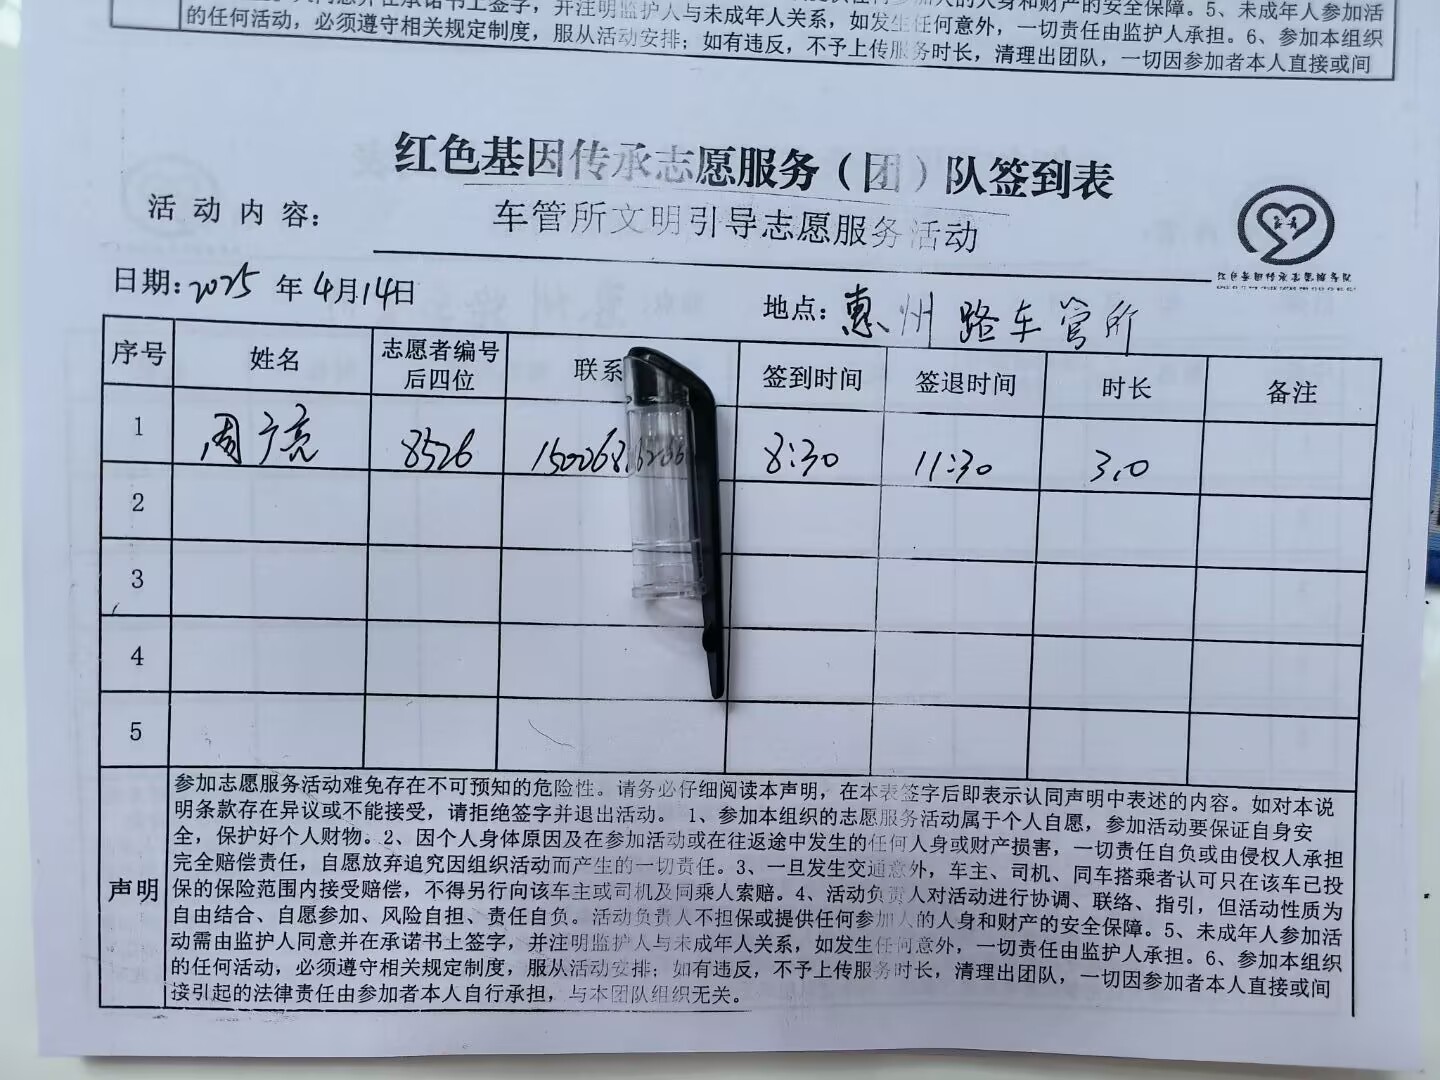 人同意并在承诺书上签字，并注明监护人与未成年人关系，如发生任何意外，一切责任由监护人承担。6、参加本组织
的人身和财产的安全保障。5、未成年人参加活
的任何活动，必须遵守相关规定制度，服从活动安排；如有违反，不予上传服务时长，清理出团队，一切因参加者本人直接或间
红色基因传承志愿服务（团）队签到表
活动内容：
车管所文明引导志愿服务活动
红色基因传承志愿服务队
日期：2025年4月14日
地点：惠州路车管所
序号 姓名 志愿者编号后四位 联系 签到时间 签退时间 时长 备注
1 周广亮 8526 8:30 11:30 3.0
2
3
4
5
声明
参加志愿服务活动难免存在不可预知的危险性。请务必仔细阅读本声明，在本表签字后即表示认同声明中表述的内容。如对本说
明条款存在异议或不能接受，请拒绝签字并退出活动。 1、参加本组织的志愿服务活动属于个人自愿，参加活动要保证自身安
全，保护好个人财物。2、因个人身体原因及在参加活动或在往返途中发生的任何人身或财产损害，一切责任自负或由侵权人承担
完全赔偿责任，自愿放弃追究因组织活动而产生的一切责任。3、一旦发生交通意外，车主、司机、同车搭乘者认可只在该车已投
保的保险范围内接受赔偿，不得另行向该车主或司机及同乘人索赔。4、活动负责人对活动进行协调、联络、指引，但活动性质为
自由结合、自愿参加、风险自担、责任自负。活动负责人不担保或提供任何参加人的人身和财产的安全保障。5、未成年人参加活
动需由监护人同意并在承诺书上签字，并注明监护人与未成年人关系，如发生任何意外，一切责任由监护人承担。6、参加本组织
的任何活动，必须遵守相关规定制度，服从活动安排；如有违反，不予上传服务时长，清理出团队，一切因参加者本人直接或间
接引起的法律责任由参加者本人自行承担，与本团队组织无关。